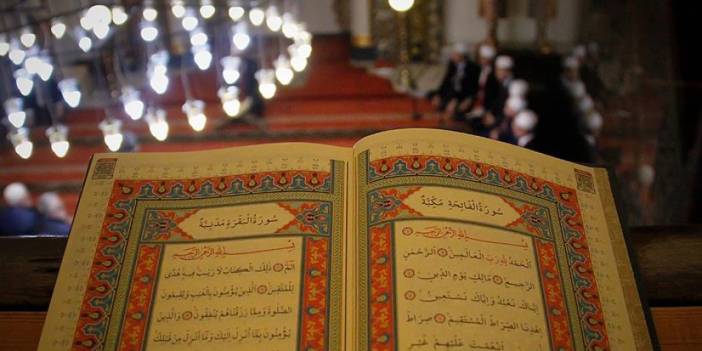 سُورَةُ الْفَاتِحَةِ مَكِّيَّةٌ
بِسْمِ اللّٰهِ الرَّحْمٰنِ الرَّحِيمِ
اَلْحَمْدُ لِلّٰهِ رَبِّ الْعَالَمِينَ اَلرَّحْمٰنِ
الرَّحِيمِ مَالِكِ يَوْمِ الدِّينِ
اِيَّاكَ نَعْبُدُ وَاِيَّاكَ نَسْتَعِينُ
اِهْدِنَا الصِّرَاطَ الْمُسْتَقِيمَ صِرَاطَ
اَنْعَمْتَ عَلَيْهِمْ غَيْرِ
سُورَةُ الْبَقَرَةِ مَدَنِيَّةٌ
بِسْمِ اللّٰهِ الرَّحْمٰنِ الرَّحِيمِ
الٓمٓ ذٰلِكَ الْكِتَابُ لَا رَيْبَ فِيهِ هُدًى
لِلْمُتَّقِينَ اَلَّذِينَ يُؤْمِنُونَ بِالْغَيْبِ وَيُقِيمُونَ
الصَّلٰوةَ وَمِمَّا رَزَقْنَاهُمْ يُنْفِقُونَ وَالَّذِينَ
يُؤْمِنُونَ بِمَا اُنْزِلَ اِلَيْكَ وَمَا اُنْزِلَ مِنْ قَبْلِكَ